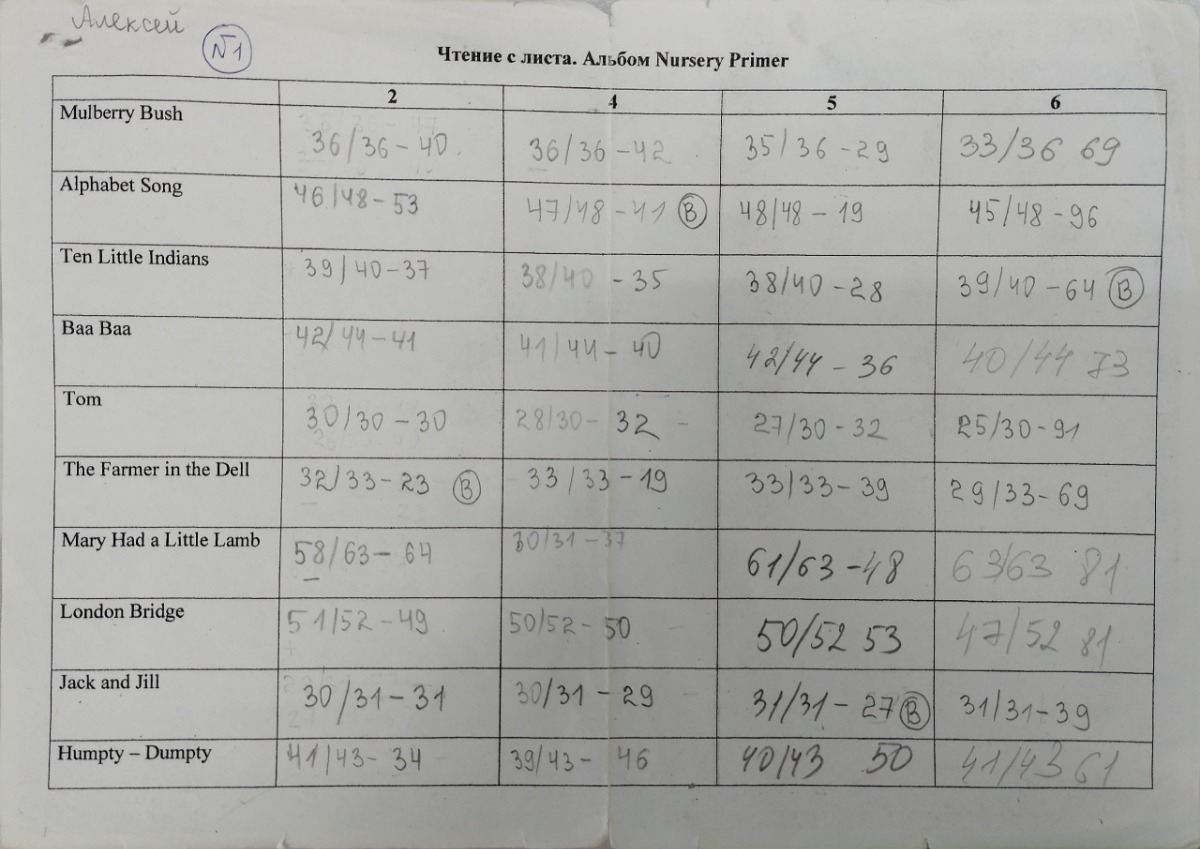 Алексей
№1
Чтение с листа. Альбом Nursery Primer
2 4 5 6
Mulberry Bush 36/36 – 40. 36/36 – 42 35/36 - 29 33/36 69
Alphabet Song 46/48 – 53 47/48 – 41 В 48/48 – 19 45/48 – 96
Ten Little Indians 39/40 – 37 38/40 – 35 38/40 – 28 39/40 – 64 В
Baa Baa 42/44 – 41 41/44 – 40 42/44 – 36 40/44 73
Tom 30/30 – 30 28/30 – 32 27/30 – 32 25/30 – 91
The Farmer in the Dell 32/33 – 23 В 33/33 – 19 33/33 – 39 29/33 – 69
Mary Had a Little Lamb 58/63 – 64 30/31 – 37 61/63 – 48 63/63 81
London Bridge 51/52 – 49 50/52 – 50 50/52 53 47/52 81
Jack and Jill 30/31 – 31 30/31 – 29 31/31 – 27 В 31/31 – 39
Humpty – Dumpty 41/43 – 34 39/43 – 46 40/43 50 41/43 61